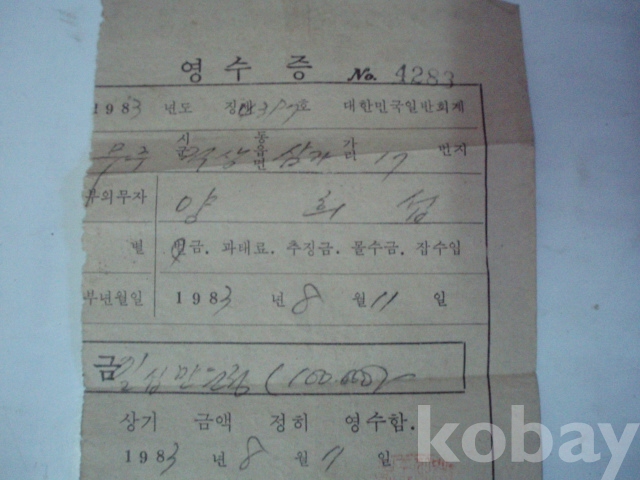 영수증 No. 4283
1983 년도 징 호 대한민국일반회계
무주 시군 적상 동읍면 삼가 가리 17 번지
부의무자 양희섭
별 벌금. 과태료. 추징금. 몰수금. 잡수입
부년월일 1983년 8월 11일
금 일십만 (100,000)
상기 금액 정히 영수함.
1983년 8월 11일
kobay